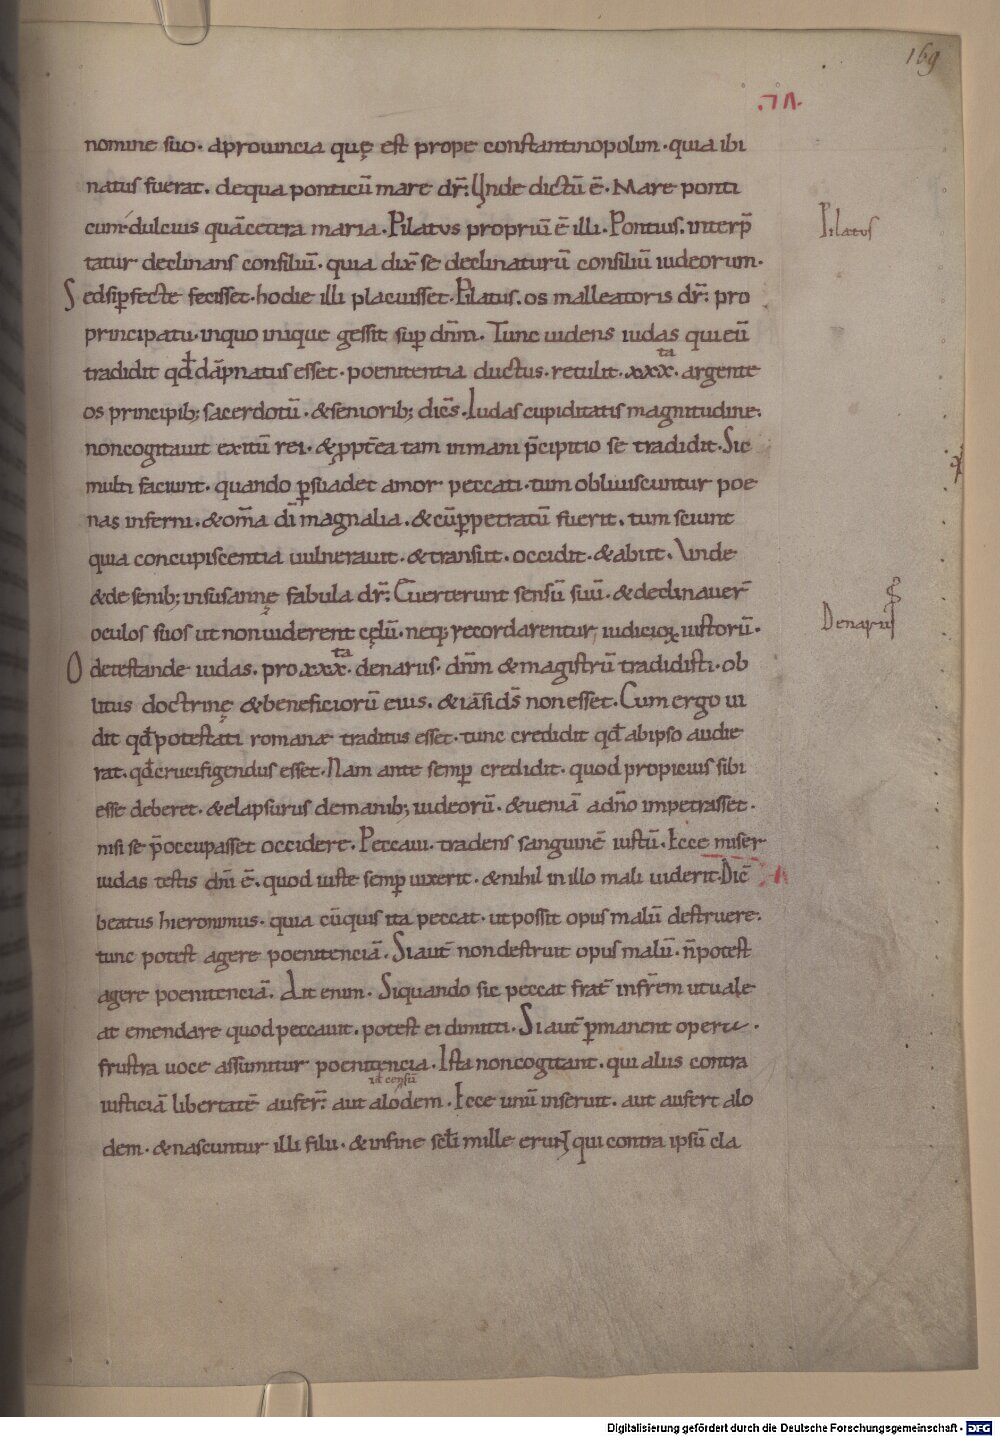 169
.VII.
nomine suo. a prouincia quę est prope constantinopolim. quia ibi
natus fuerat. de qua ponticū mare dr̄. Unde dictū ē. Mare ponti
cum dulcius quā cetera maria. Pilatus propriū ē illi. Pontius. interp̄
Pilatus
tatur declinans consiliū. quia dix̄ se declinaturū consiliū iudeorum.
Sed si ꝑfecte fecisset. hodie illi placuisset. Pilatus. os malleatoris dr̄. pro
principatu. in quo inique gessit sup̄ dnm̄. Tunc uidens iudas qui eū
tradidit qđ dāpnatus esset. poenitentia ductus. retulit. xxx.ta argente
os principib; sacerdotū. & seniorib; dicēs. Iudas cupiditatis magnitudine.
non cogitauit exitū rei. & ꝓpt̄ea tam inmani p̄cipitio se tradidit. Sic
multi faciunt. quando ꝑsuadet amor peccati. tum obliuiscuntur poe
nas inferni. & om̄a dī magnalia. & cū ꝑpetratū fuerit. tum sciunt
quia concupiscentia uulnerauit. & transiit. occidit. & abiit. Unde
& de senib; in susannę fabula dr̄. Euerterunt sensū suū. & declinauer̄
oculos suos ut non uiderent cęlū. neq; recordarentur iudicioꝝ iustorū.
Denarius
O detestande iudas. pro xxx.ta denariis. dnm̄ & magistrū tradidisti. ob
litus doctrinę & beneficiorū eius. & iā fid̄s non esset. Cum ergo ui
dit qđ potestati romanæ traditus esset. tunc credidit qđ ab ipso audie
rat. qđ crucifigendus esset. Nam ante semp̄ credidit. quod propicius sibi
esse deberet. & elapsurus de manib; iudeorū. & ueniā a dn̄o impetrasset.
nisi se p̄occupasset occidere. Peccaui. tradens sanguinē iustū. Ecce miser
iudas testis dn̄i ē. quod iuste semp̄ uixerit. & nihil in illo mali uiderit. Dic̄
beatus hieronimus. quia cū quis ita peccat. ut possit opus malū destruere.
tunc potest agere poenitenciā. Si aut̄ non destruit opus malū. n̄ potest
agere poenitenciā. Ait enim. Siquando sic peccat frat̄ in fr̄em ut uale
at emendare quod peccauit. potest ei dimitti. Si aut̄ ꝑmanent opera.
frustra uoce assumitur poenitencia. Ista non cogitant. qui aliis contra
iusticiā libertatē aufer̄. aut alodem. Ecce unū inseruit. aut aufert alo
dem. & nascuntur illi filii. & in fine scłi mille erunt qui contra ipsū cla
Digitalisierung gefördert durch die Deutsche Forschungsgemeinschaft - DFG